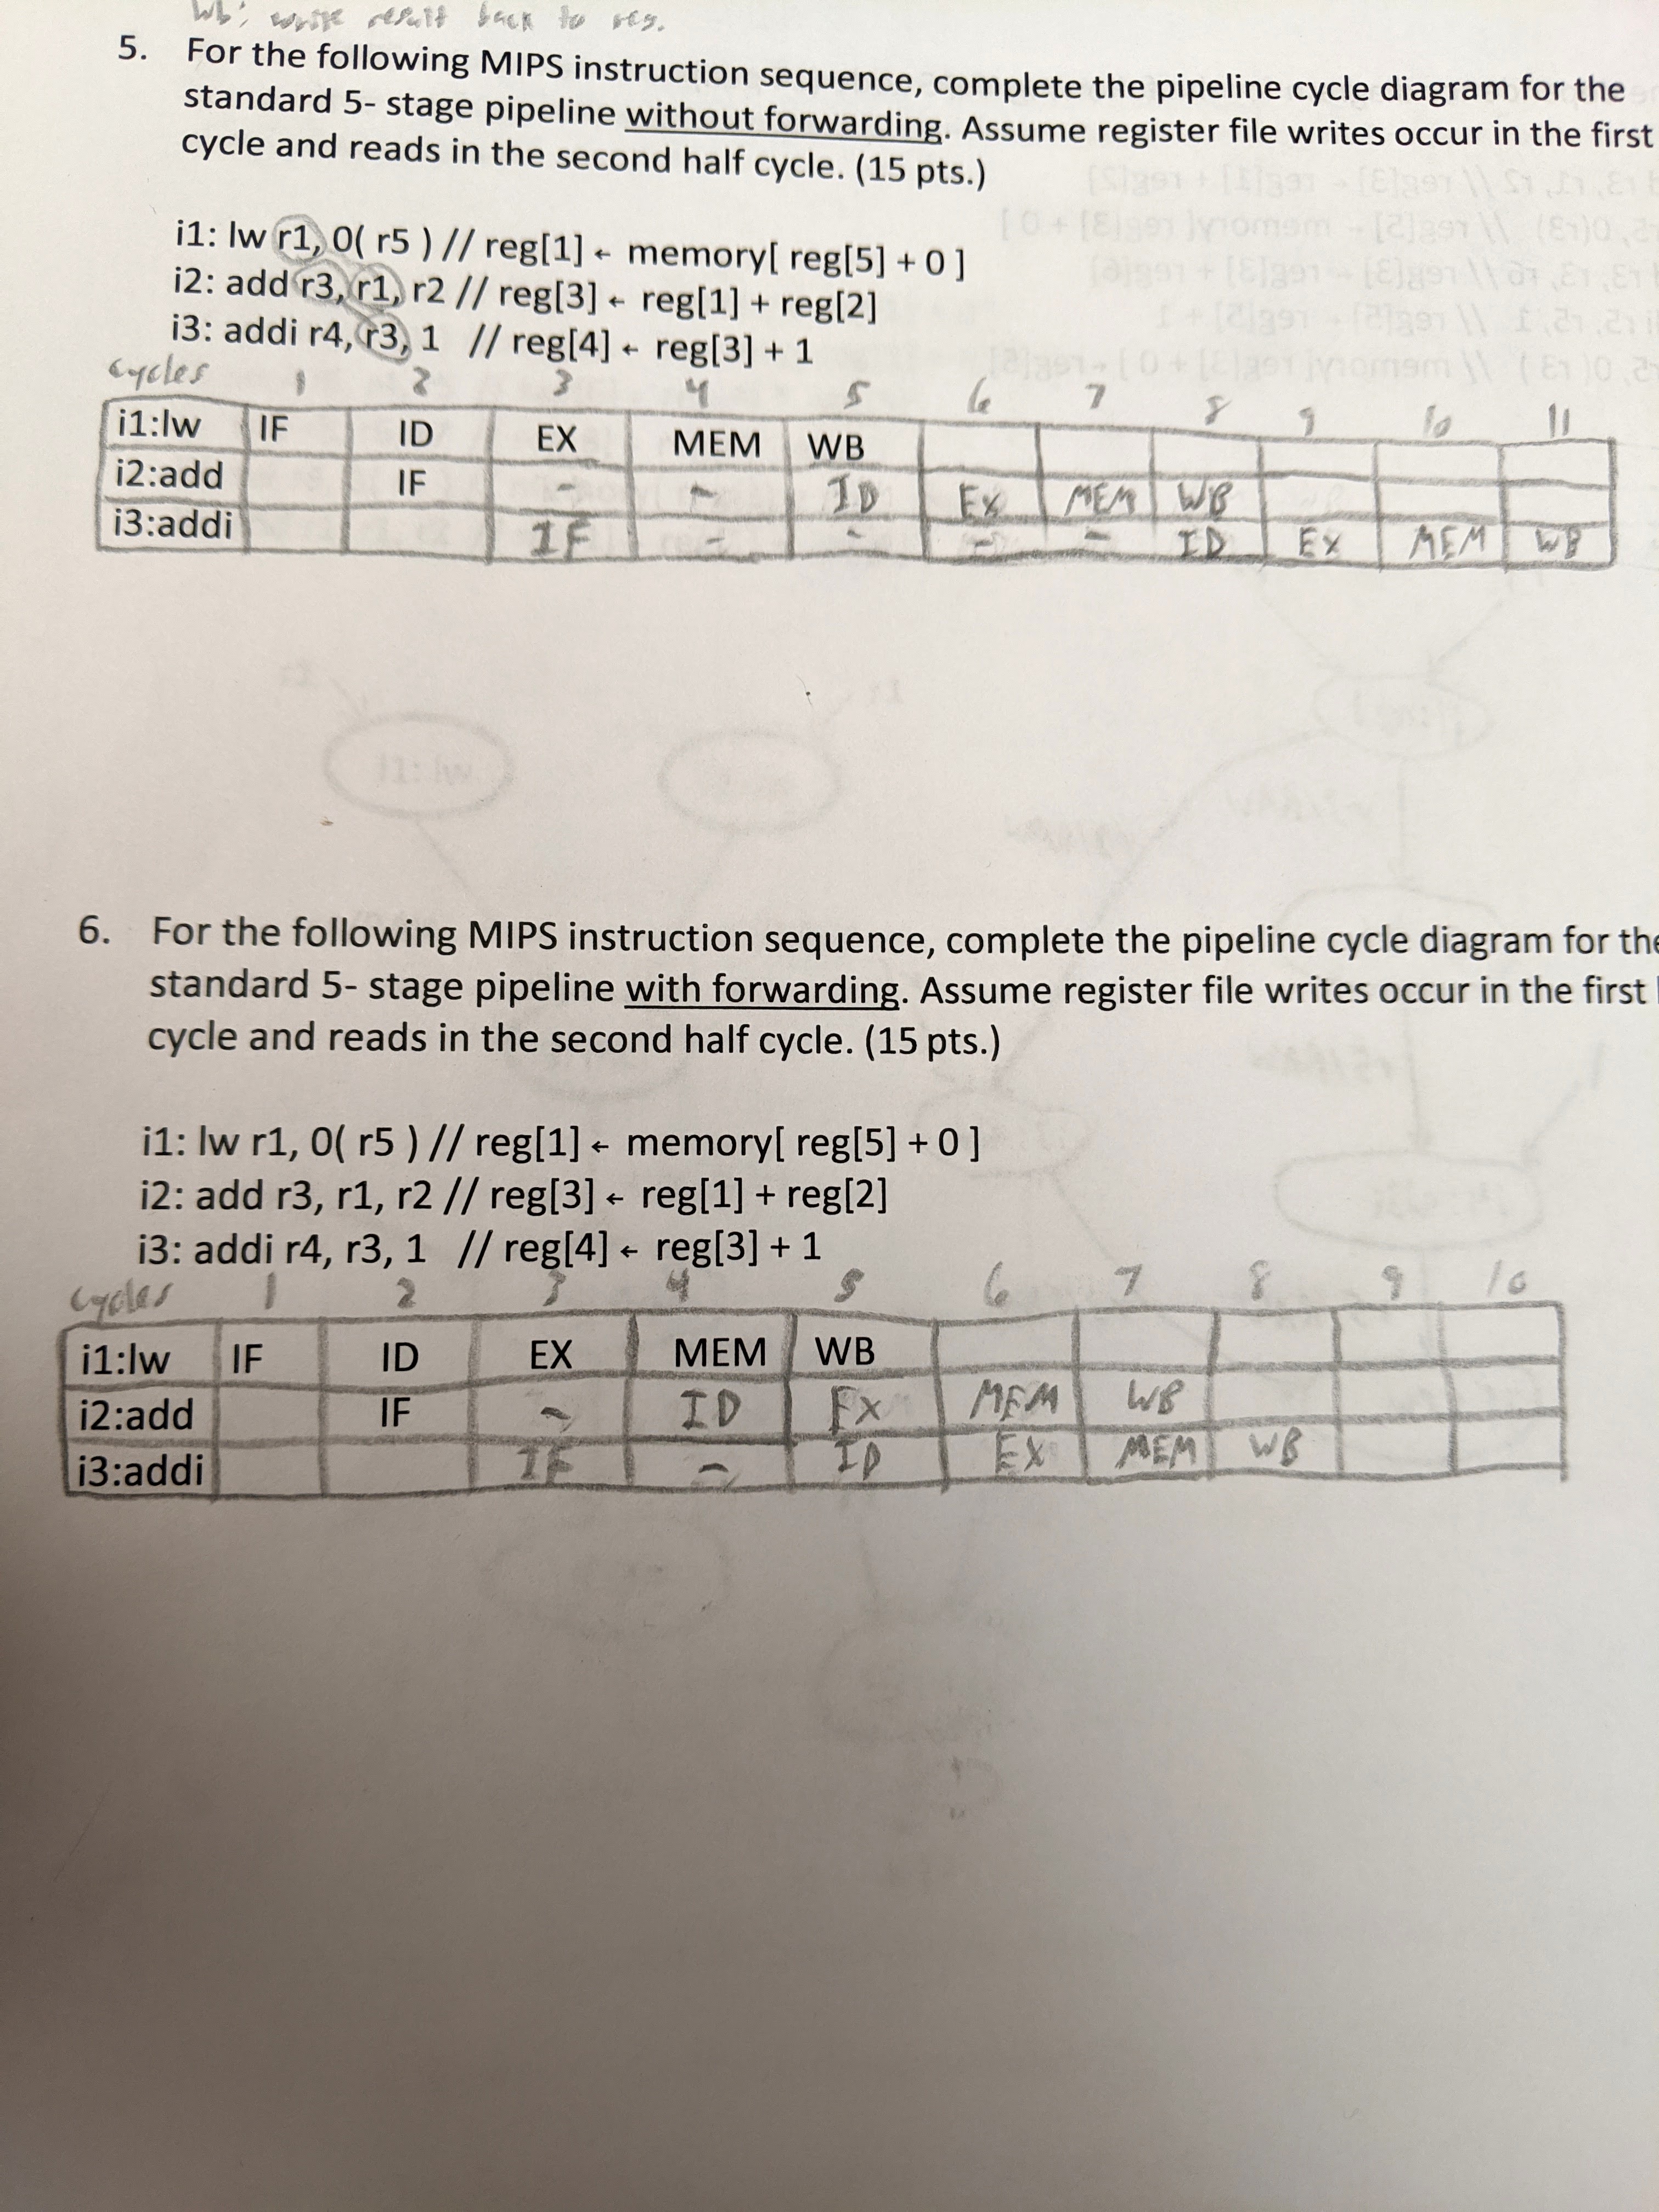 Wb: write result back to reg.
5. For the following MIPS instruction sequence, complete the pipeline cycle diagram for the
standard 5- stage pipeline without forwarding. Assume register file writes occur in the first
cycle and reads in the second half cycle. (15 pts.)
i1: lw r1, 0( r5 ) // reg[1] ← memory[ reg[5] + 0 ]
i2: add r3, r1, r2 // reg[3] ← reg[1] + reg[2]
i3: addi r4, r3, 1 // reg[4] ← reg[3] + 1
cycles 1 2 3 4 5 6 7 8 9 10 11
i1:lw IF ID EX MEM WB
i2:add IF - - ID Ex MEM WB
i3:addi IF - - - - ID Ex MEM WB
6. For the following MIPS instruction sequence, complete the pipeline cycle diagram for the
standard 5- stage pipeline with forwarding. Assume register file writes occur in the first
cycle and reads in the second half cycle. (15 pts.)
i1: lw r1, 0( r5 ) // reg[1] ← memory[ reg[5] + 0 ]
i2: add r3, r1, r2 // reg[3] ← reg[1] + reg[2]
i3: addi r4, r3, 1 // reg[4] ← reg[3] + 1
cycles 1 2 3 4 5 6 7 8 9 10
i1:lw IF ID EX MEM WB
i2:add IF - ID Ex MEM WB
i3:addi IF - ID EX MEM WB